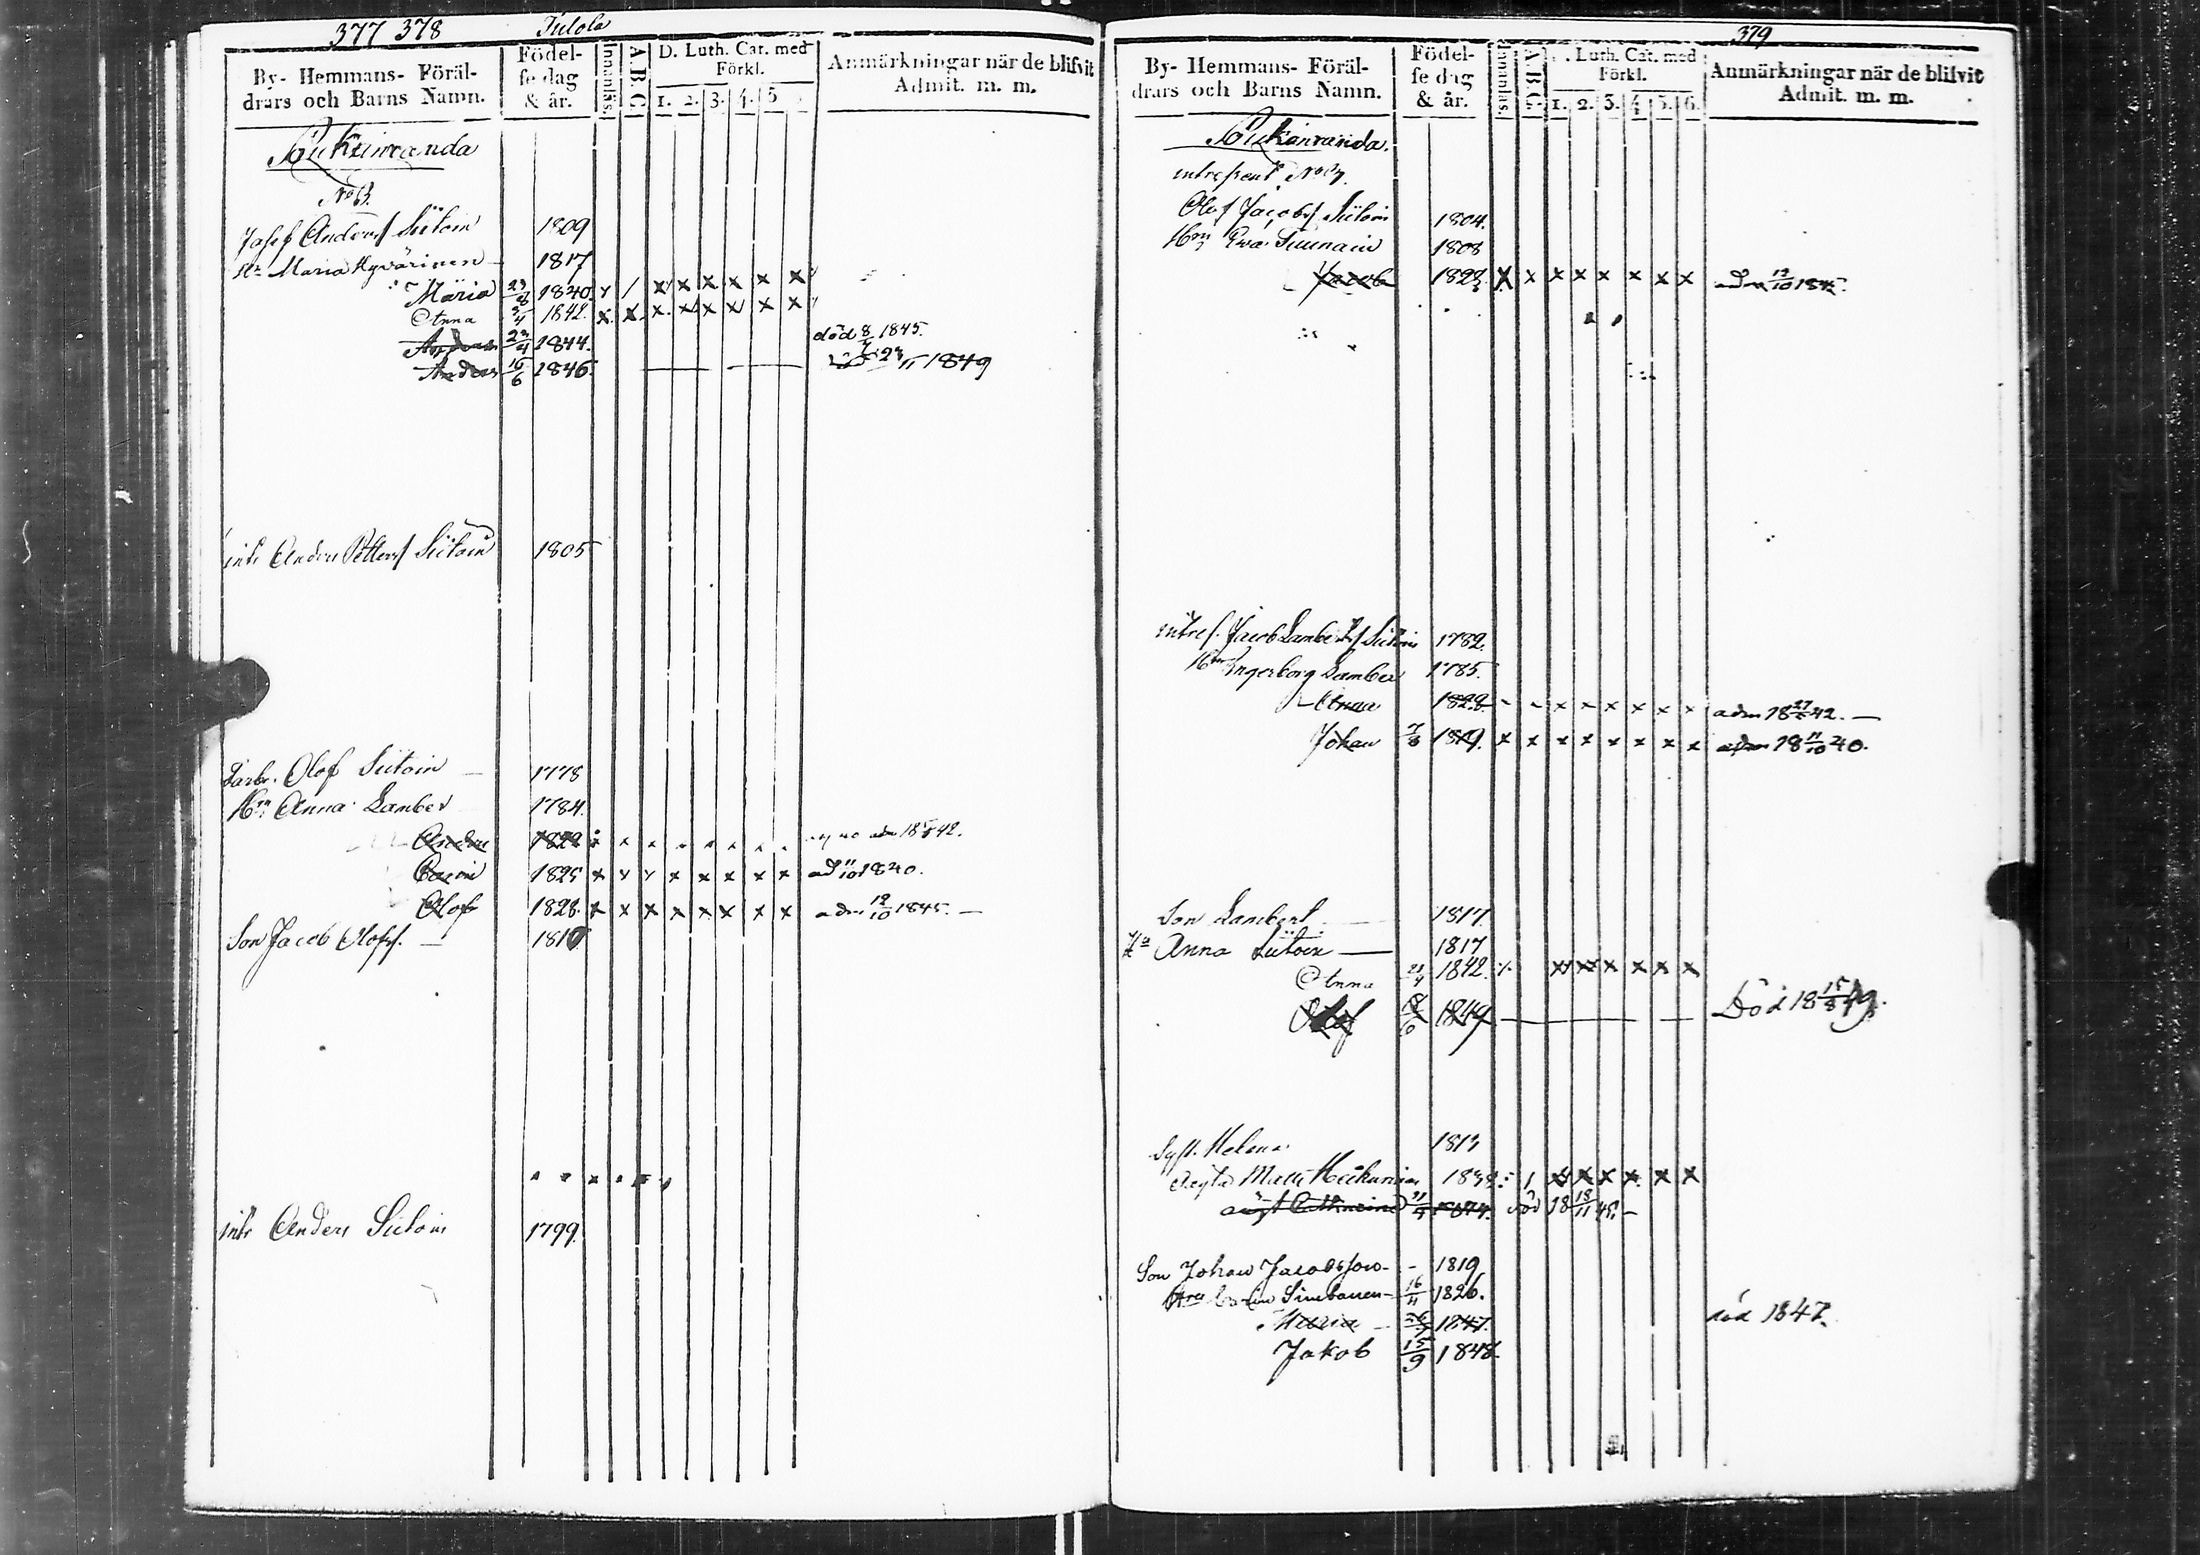 377 378 Tulola
By- Hemmans- Föräl-
drars och Barns Namn.
Födel-
se dag
& år.
Innanläs.
A.B.C.
D. Luth. Cat. med
Förkl.
1. 2. 3. 4. 5
Anmärkningar när de blifvit
Admit. m. m.
Pukinranda
No 3.
Josef Anders Siitoin 1809
Hu Maria Hyvärinen 1817
Maria 23/8 1840. x / x x x x x x
Anna 3/4 1842. x x x x x x x x
Anders 23/4 1844. död 8/7 1845.
Anders 16/6 1846. 23/11 1849
inh Anders Petters Siitoin 1805
Farbr. Olof Siitoin 1778
Hu Anna Lamber 1784.
Anders 1822 adm 18 42.
Carin 1825 x x x x x x x x ad 11/10 1840.
Olof 1828. x x x x x x x x adm 12/10 1845.
Son Jacob Olofss. 1810
inh Anders Siitoin 1799.
379
By- Hemmans- Föräl-
drars och Barns Namn.
Födel-
se dag
& år.
Innanläs.
A.B.C.
. Luth. Cat. med
Förkl.
1. 2. 3. 4 5. 6.
Anmärkningar när de blifvit
Admit. m. m.
Pukinranda.
Olof Jacobs Siitoin 1804.
Hru Ewa 1808
Jacob 1828 x x x x x x x x adm 12/10 1845.
Jacob Lamberts Siitoin 1782.
Hru Ingerborg Lamber 1785.
Anna 1822 adm 18 27/ 42.
Johan 7/8 1819. x x x x x x x x adm 18 11/10 40.
Son Lambert 1817.
Hu Anna Siitoin 1817
Anna 21/4 1842. x x x x x x
Olof 1849 Död 18 15/8 49.
Syst. Helena 1813
oägta Matts x x x x x x
oägt Cathrina död 18 18/11 45.
Son Johan Jacobsson 1819
Hru Carin 16/4 1826.
Maria 1847. död 1847.
Jakob 15/9 1848